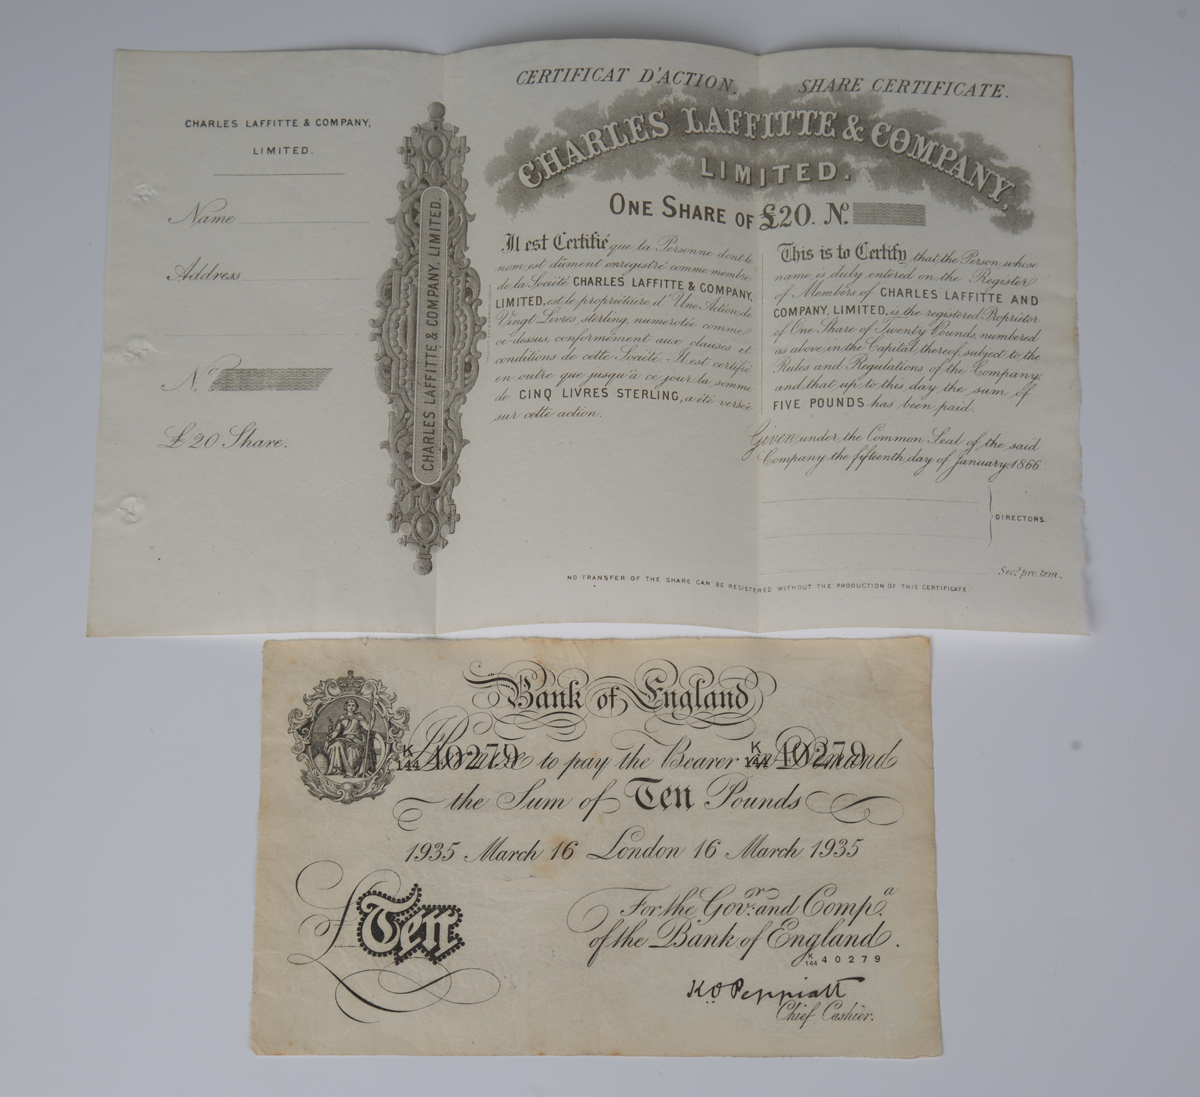 CHARLES LAFFITTE & COMPANY,
LIMITED.
Name
Address
No.
£20 Share.
CHARLES LAFFITTE & COMPANY, LIMITED.
CERTIFICAT D'ACTION. SHARE CERTIFICATE.
CHARLES LAFFITTE & COMPANY,
LIMITED.
ONE SHARE OF £20. No.
Il est Certifié que la Personne dont le
nom est dûment enregistré comme membre
de la Société CHARLES LAFFITTE & COMPANY,
LIMITED, est le propriétaire d'Une Action de
Vingt Livres sterling, numerotée comme
ci-dessus, conformément aux clauses et
conditions de cette Société. Il est certifié
en outre que jusqu'à ce jour la somme
de CINQ LIVRES STERLING, a été versée
sur cette action.
This is to Certify that the Person whose
name is duly entered on the Register
of Members of CHARLES LAFFITTE AND
COMPANY, LIMITED, is the registered Proprietor
of One Share of Twenty Pounds, numbered
as above, in the Capital thereof, subject to the
Rules and Regulations of the Company,
and that up to this day the sum of
FIVE POUNDS has been paid.
Given under the Common Seal of the said
Company the fifteenth day of January, 1866.
DIRECTORS.
Secy. pro. tem.
NO TRANSFER OF THE SHARE CAN BE REGISTERED WITHOUT THE PRODUCTION OF THIS CERTIFICATE.
Bank of England
K/144 40279 K/144 40279
I Promise to pay the Bearer on Demand
the Sum of Ten Pounds
1935 March 16 London 16 March 1935
£Ten
For the Govr. and Compa.
of the Bank of England.
K/144 40279
K.O. Peppiatt
Chief Cashier.